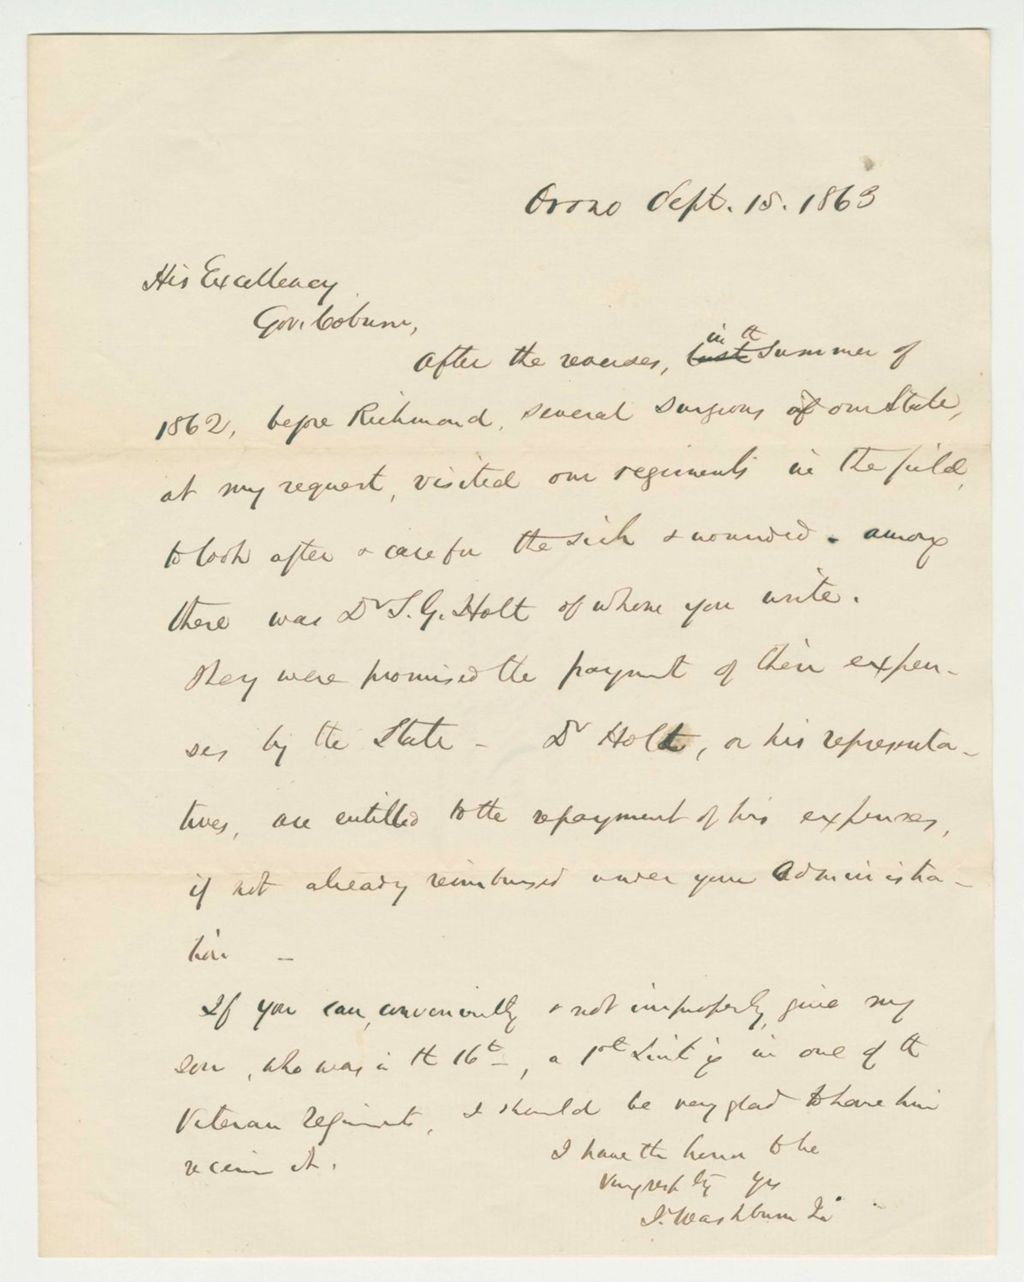 Orono Sept. 15. 1863
His Excellency
Gov. Coburn,
in th
After the reverses, last Summer of
1862, before Richmond, several surgeons of our State,
at my request, visited our regiments in the field,
to look after & care for the sick & wounded. among
there was Dr S. G. Holt of whom you write.
They were promised the payment of their expen-
ses by the State - Dr Holt, or his representa-
tives, are entitled to the repayment of his expenses,
if not already reimbursed under your Administra-
tion -
If you can, conveniently & not improperly, give my
son, who was in th 16th, a 1st Lieut'cy in one of th
Veteran regiments, I should be very glad to have him
receive it.
I have th honor to be
Very respctly yrs
I. Washburn Jr